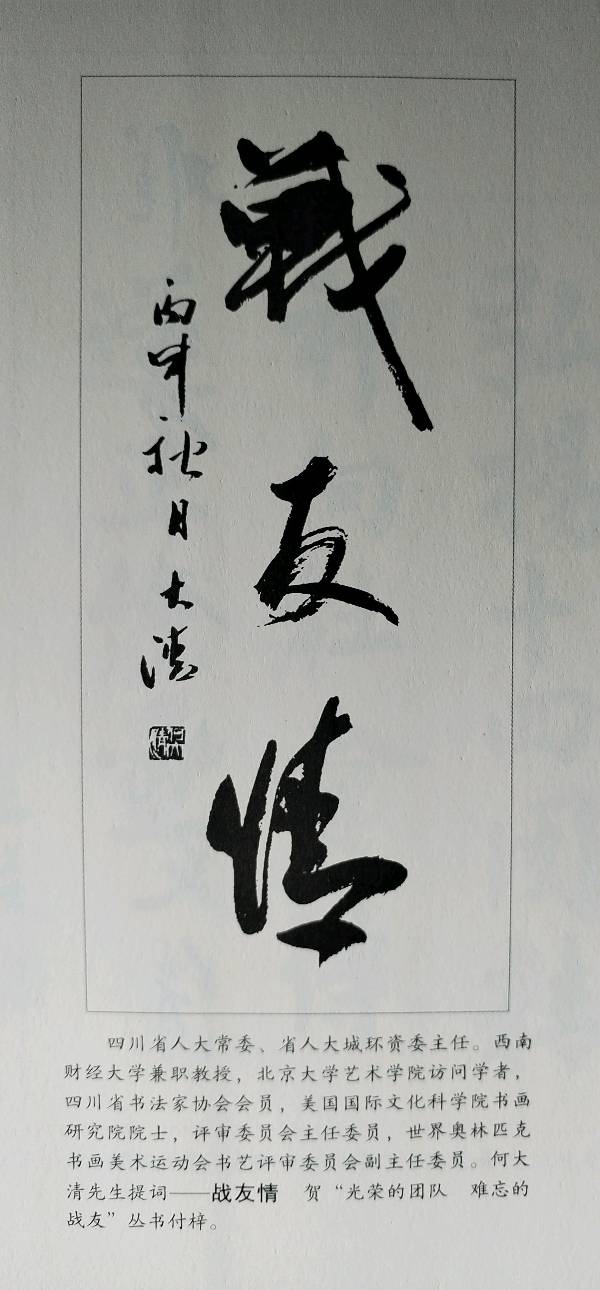 戰友情
丙申秋月大清
四川省人大常委、省人大城环资委主任。西南
财经大学兼职教授，北京大学艺术学院访问学者，
四川省书法家协会会员，美国国际文化科学院书画
研究院院士，评审委员会主任委员，世界奥林匹克
书画美术运动会书艺评审委员会副主任委员。何大
清先生提词——战友情　贺“光荣的团队　难忘的
战友”丛书付梓。